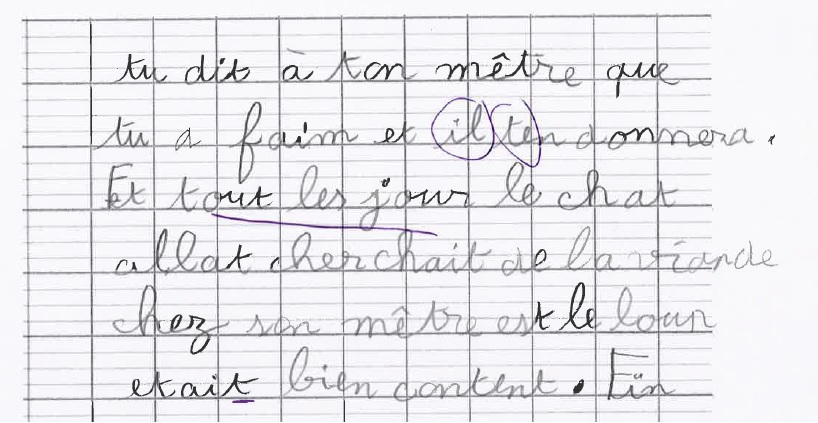 tu dit à ton mêtre que
tu a faim et il ten donnera.
Et tout les jour le chat
allat cherchait de la viande
chez son mêtre est le loup
etait bien content. Fin